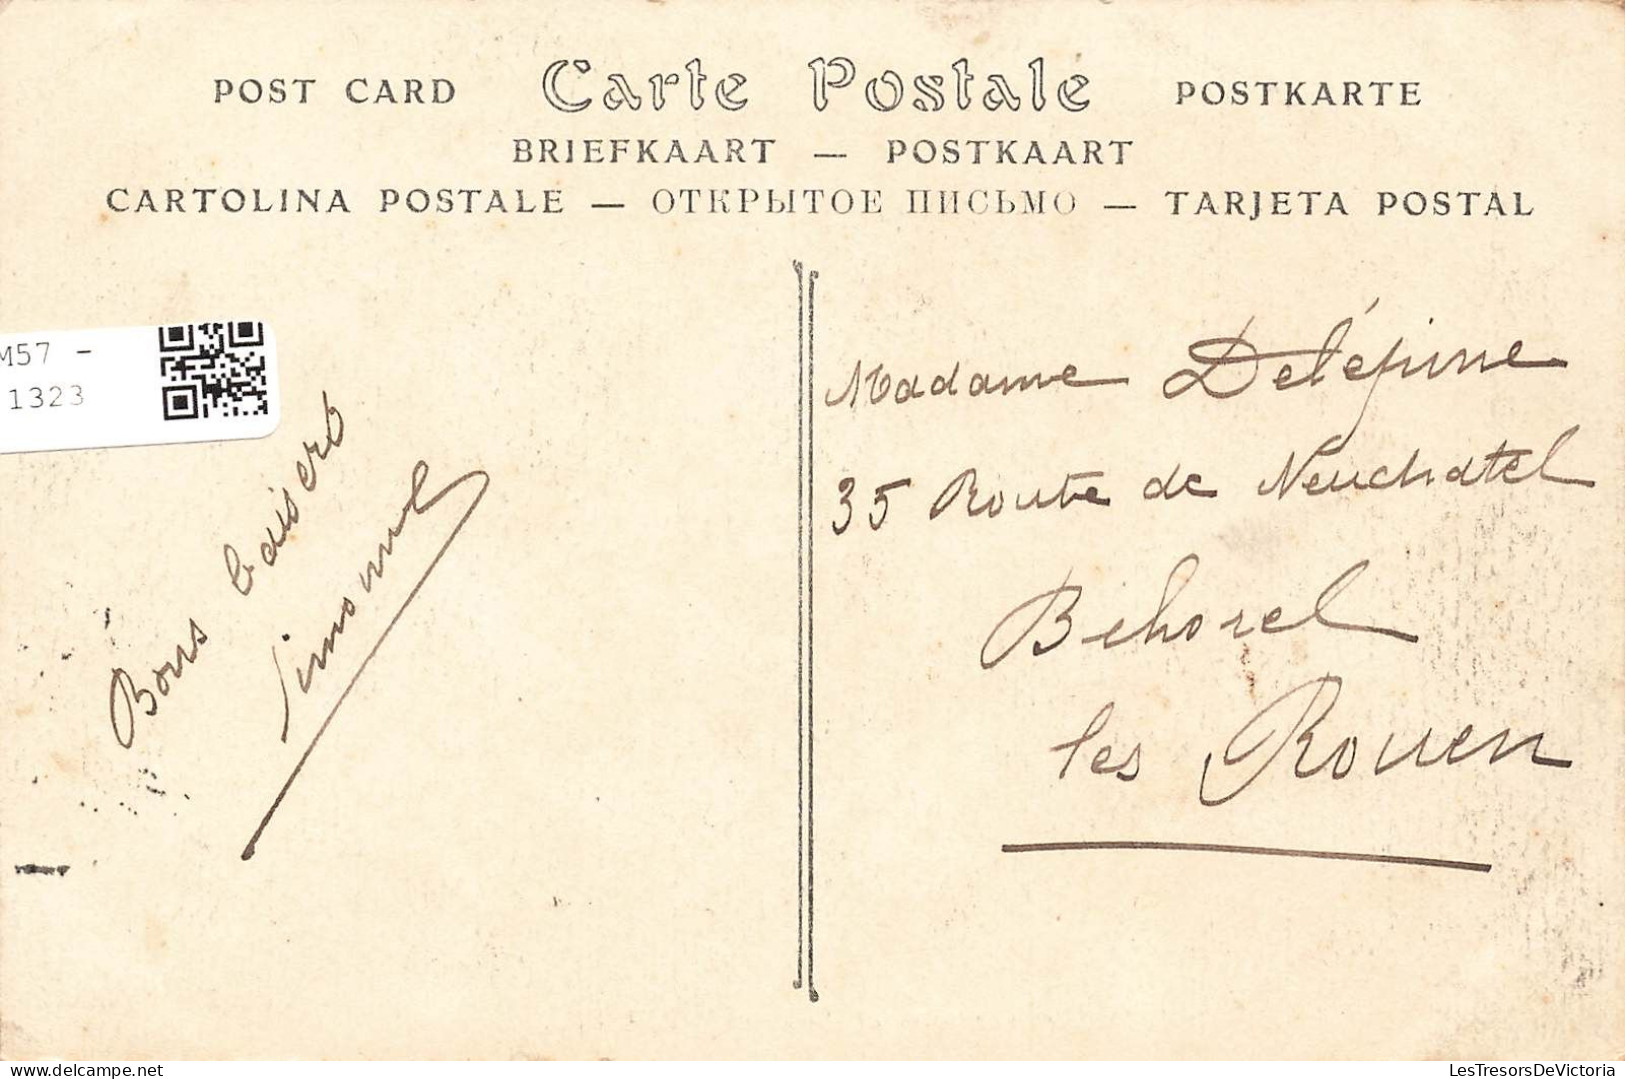 POST CARD Carte Postale POSTKARTE
BRIEFKAART — POSTKAART
CARTOLINA POSTALE — ОТКРЫТОЕ ПИСЬМО — TARJETA POSTAL
M57 -
1323
Bons baisers
Simonne
Madame Delépine
35 Route de Neuchatel
Bihorel
les Rouen
delcampe.net
LesTresorsDeVictoria